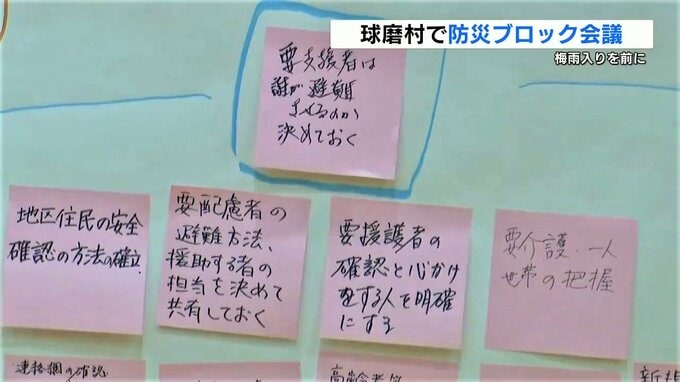 球磨村で防災ブロック会議
梅雨入りを前に
要支援者は
誰が避難
させるのか
決めておく
地区住民の安全
確認の方法の確立
要配慮者の
避難方法、
援助する者の
担当を決めて
共有しておく
要援護者の
確認と心がけ
をする人を明確
にする
要介護・一人
世帯の把握
連絡網の確認